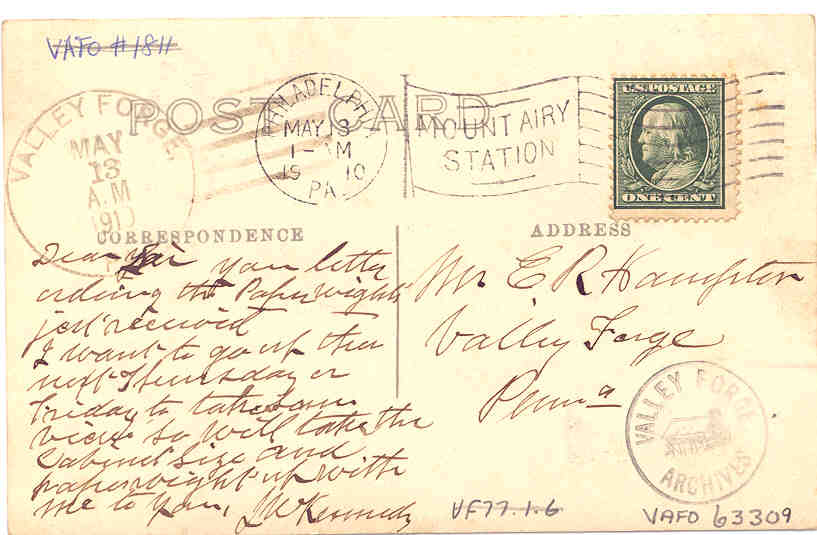 VAFO #1811
POST CARD
VALLEY FORGE,
MAY
13
A.M
191
PHILADELPHIA
MAY 13
1-AM
1910
PA
MOUNT AIRY
STATION
U.S. POSTAGE
ONE CENT
CORRESPONDENCE
ADDRESS
Dear Sir your letter
ordering the Paperwights
just received
I want to go up ther
next Thursday or
Friday to take some
views so will take the
Cabinet size and
paperwight up with
me to you, JMcKennedy
Mr E R Hampton
Valley Forge
Penna
VALLEY FORGE
ARCHIVES
VF77.1.6
VAFO 63309